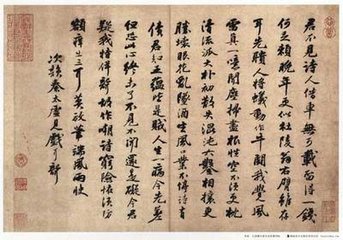 君不見詩人借車無可載留得一錢
何足賴晚年更似杜陵翁右臂雖存
耳先聵人將蟻動作牛鬭我覺風
雷真一噫聞塵掃盡根性空不須更枕
清流派大朴初散失混沌六鑿相攘更
勝壞眼花亂墜酒生風口業不停詩有
債君知五蘊皆是賊人生一病今先差
但恐此心終未了不見不聞還是礙今君
疑我特佯聾故作嘲詩窮險怪須防
額癢出三耳莫放筆端風雨快
次韻秦太虛見戲耳聾